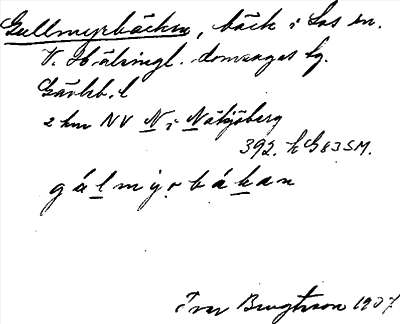 Gullmyrbäcken, bäck i Los sn.
V. Hälsingl. domsagas tg.
Gävleb. l
2 km NV N i Näsjöberg
392. h G 83 SM.
gálmyrbákan
Ivar Bengtsson 1907